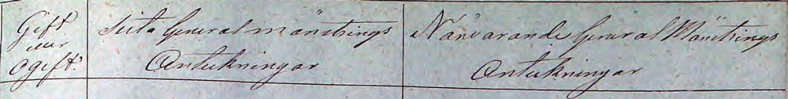 Gift
eller
ogift.
Sista General mönstrings
Anteckningar
Närvarande General Mönstrings
Anteckningar